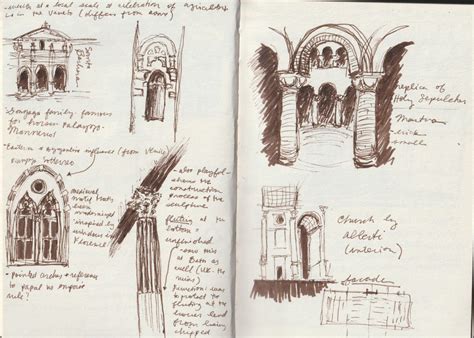 at a local scale & celebration of agriculture
in the Veneto (differs from
Santa
Gonzaga family famous
for horses
Mannerist
Eastern & byzantine influence (from Venice)
medieval
motif that's
been
modernized
inspired by
windows in
Florence
- pointed arches & reference
to papal vs emperor
rule?
- also playful-
shows the
construction
process of the
sculpture
fluting at the
bottom =
unfinished
- ours at
Bath as
well (UK - the
ruins)
function: was
to protect the
fluting at the
lower level
from being
chipped
replica of
Holy Sepulcher
Mantova
brick
small
Church by
Alberti
(interior)
facade